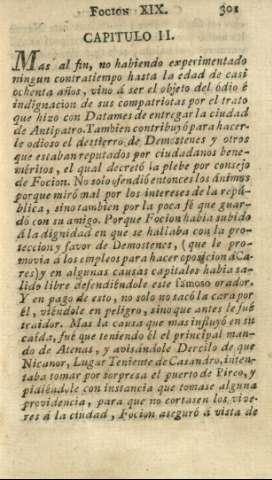 Focion XIX. 301
CAPITULO II.
Mas al fin, no habiendo experimentado
ningun contratiempo hasta la edad de casi
ochenta años, vino á ser el objeto del ódio é
indignacion de sus compatriotas por el trato
que hizo con Datames de entregar la ciudad
de Antipatro. Tambien contribuyó para hacer-
le odioso el destierro de Demostenes y otros
que estaban reputados por ciudadanos bene-
méritos, el qual decretó la plebe por consejo
de Focion. No solo ofendió entonces los ánimos
porque miró mal por los intereses de la repú-
blica, sino tambien por la poca fé que guar-
dó con su amigo. Porque Focion habia subido
á la dignidad en que se hallaba con la pro-
teccion y favor de Demostenes, (que le pro-
movia á los empleos para hacer oposicion á Ca-
res) y en algunas causas capitales habia sa-
lido libre defendiéndole este famoso orador.
Y en pago de esto, no solo no sacó la cara por
él, viéndole en peligro, sino que antes le fué
traidor. Mas la causa que mas influyó en su
caida, fué que teniendo él el principal man-
do de Atenas, y avisándole Dercilo de que
Nicanor, Lugar Teniente de Casandro, inten-
taba tomar por sorpresa el puerto de Pireo, y
pidiéndole con instancia que tomase alguna
providencia, para que no cortasen los vive-
res á la ciudad, Focion aseguró á vista de